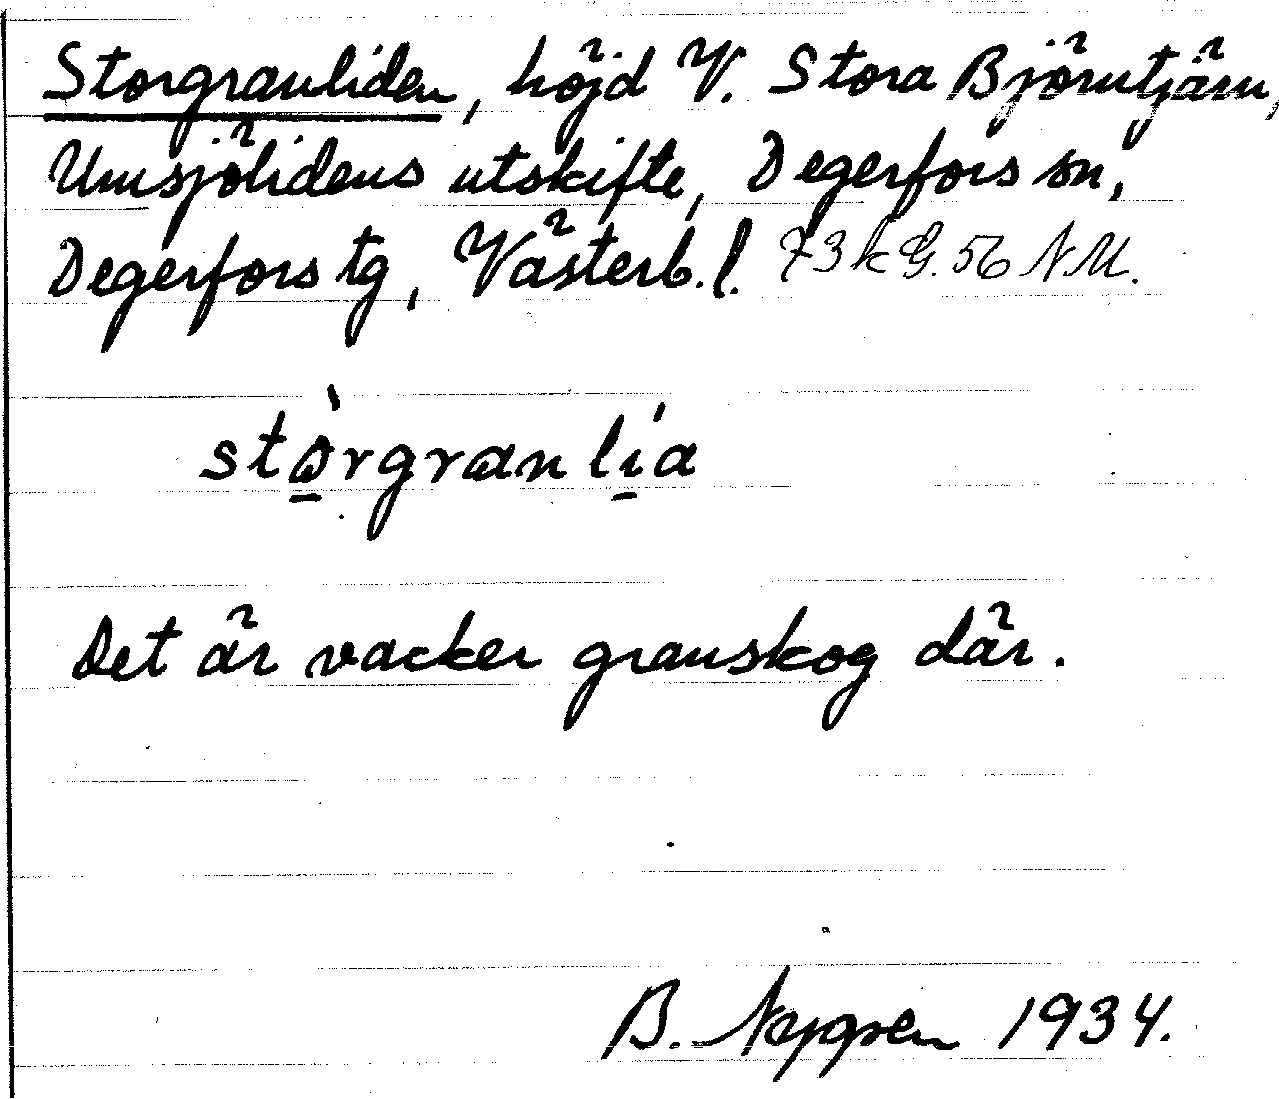 Storgranliden, höjd V. Stora Björntjärn,
Umsjölidens utskifte, Degerfors sn,
Degerfors tg, Västerb. l. 73 k G. 56 NM.
stò̱rgranlí̱a
Det är vacker granskog där.
B. Nygren 1934.